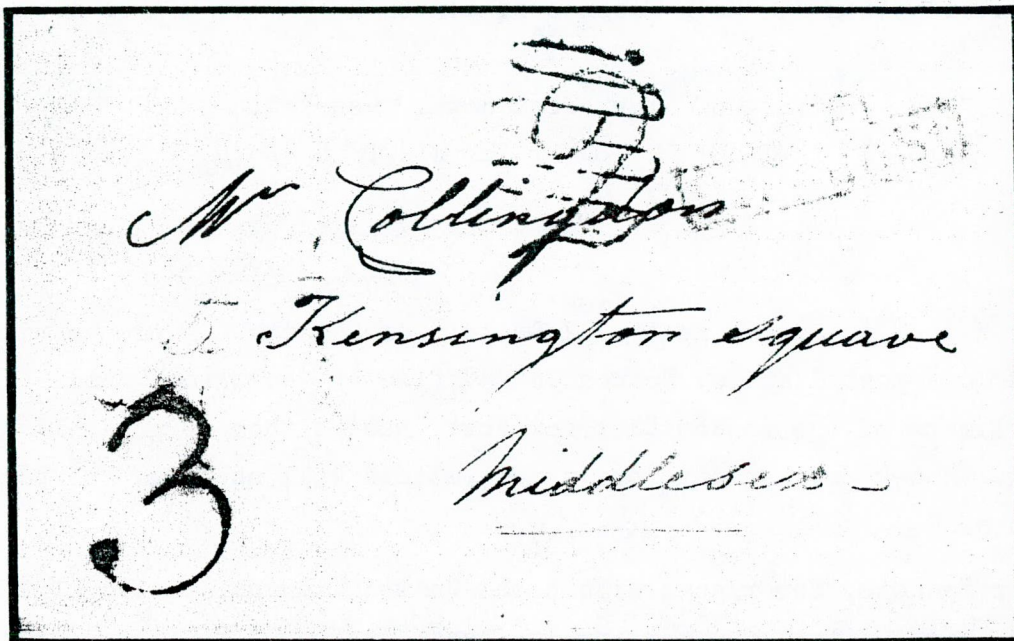 Mr Collingdon
Kensington Square
Middlesex
3